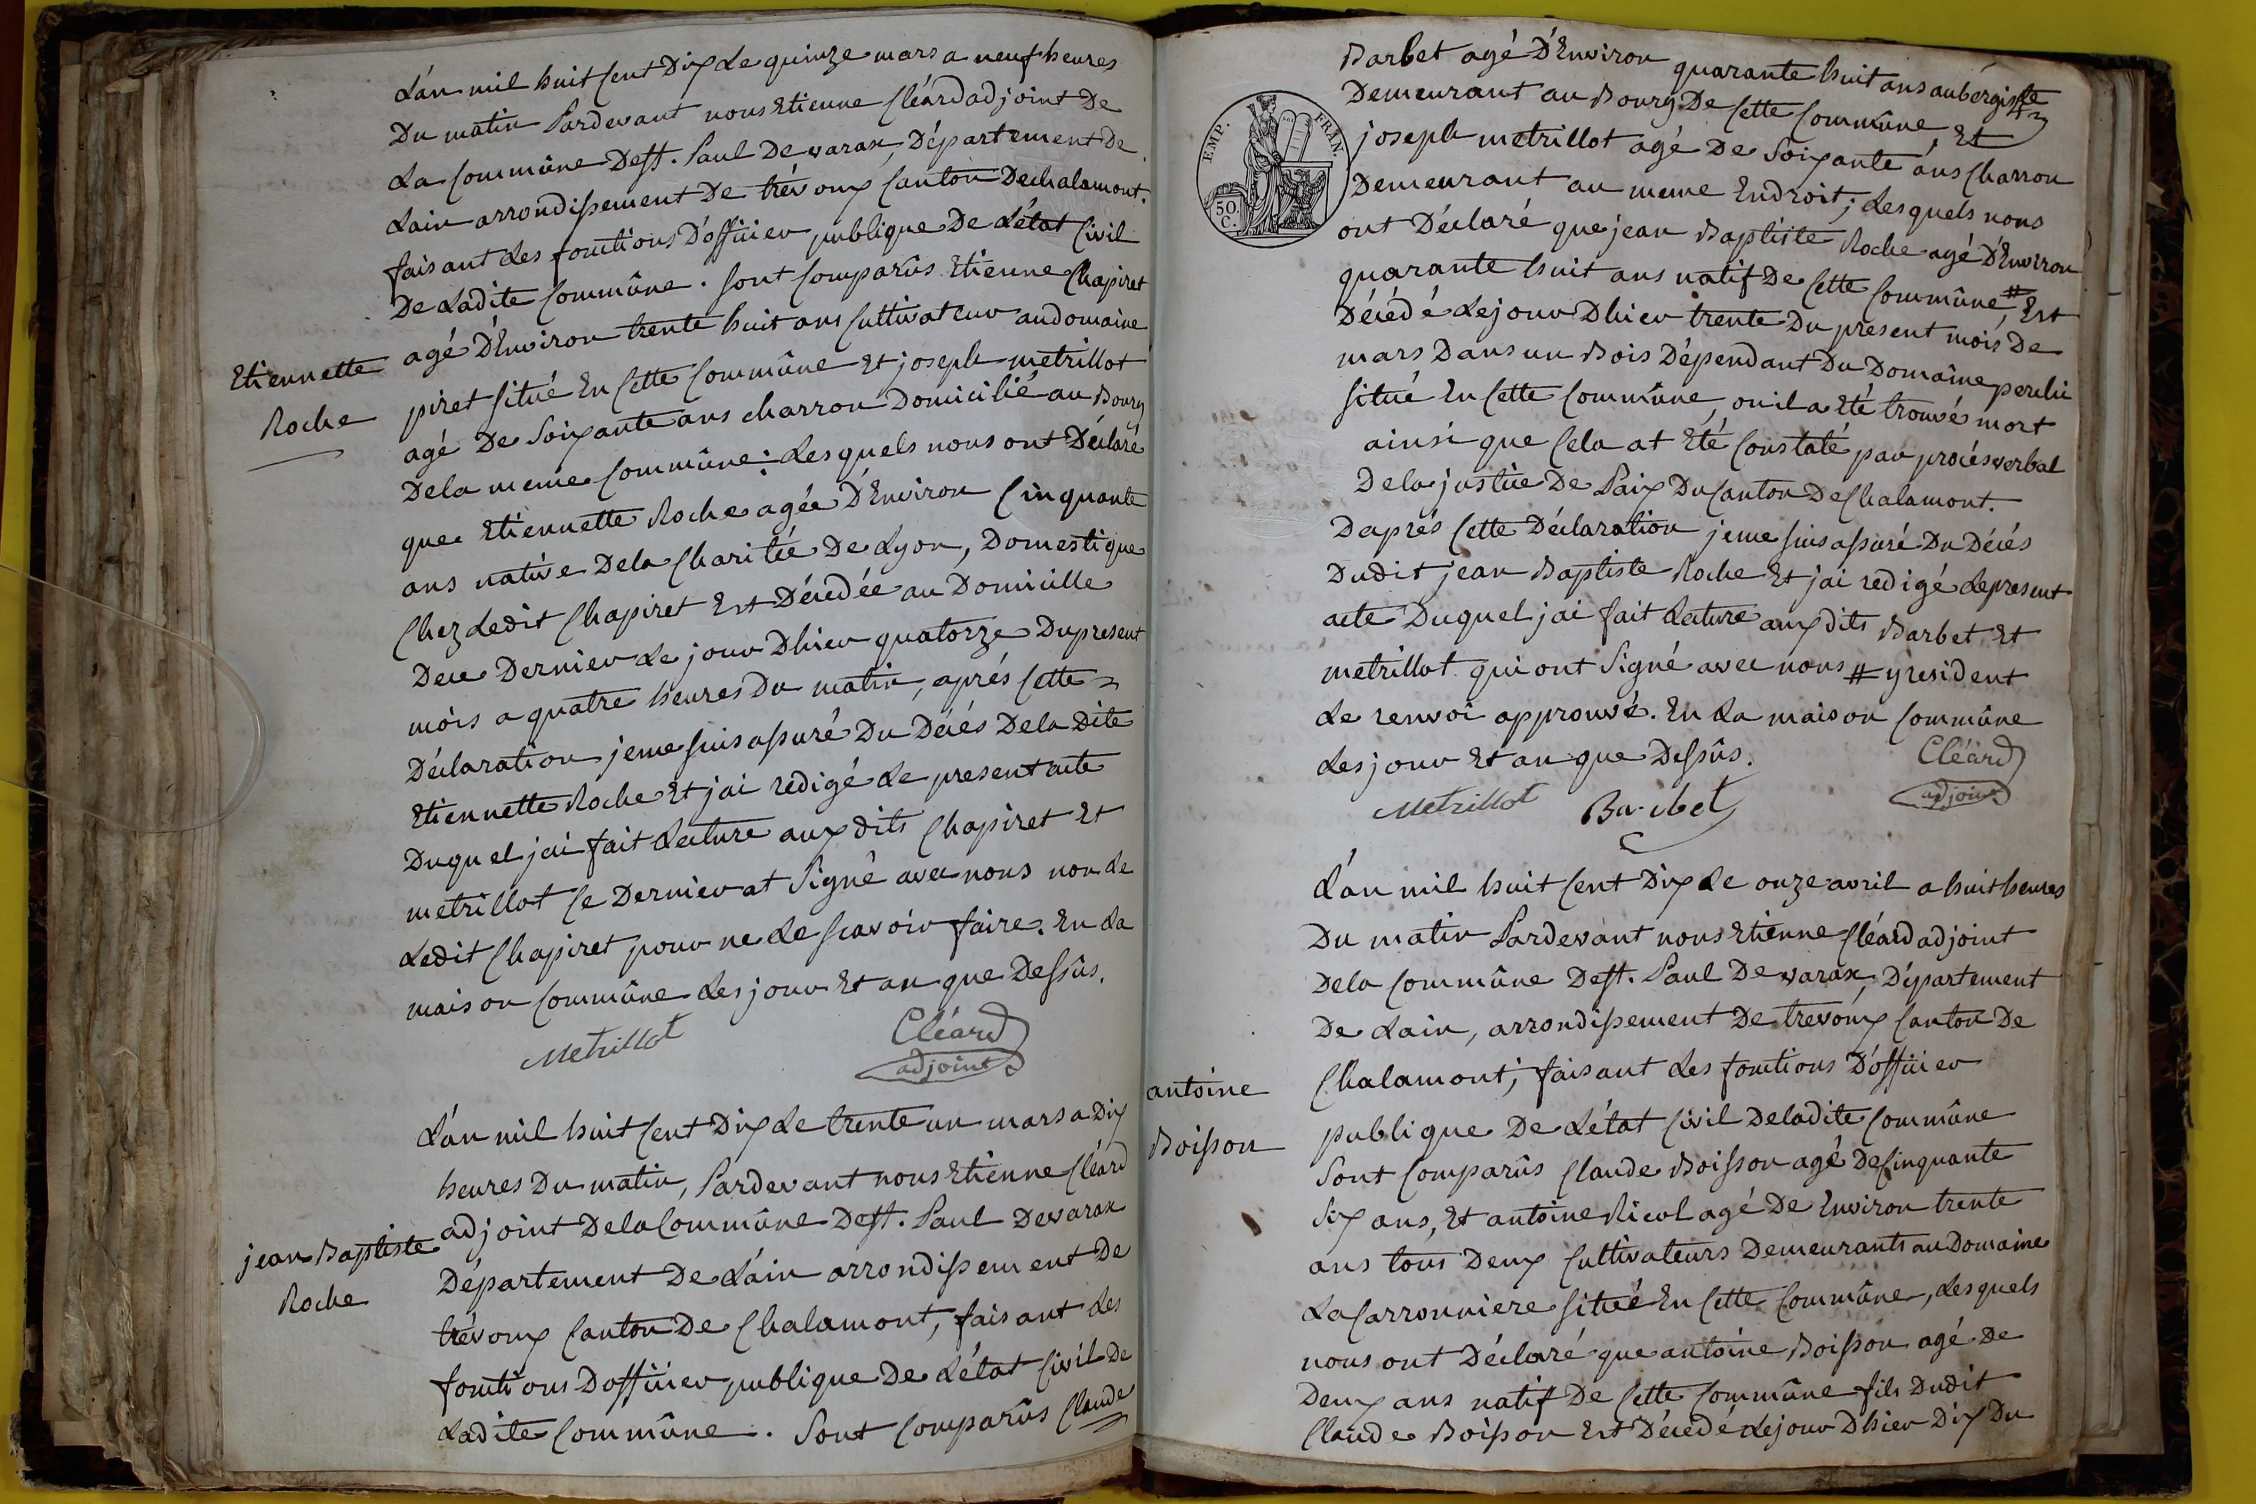 L'an mil huit Cent Dix Le quinze mars a neuf heures
Du matin Pardevant nous Etienne Cléard adjoint De
La Commûne De St. Paul De varax, Département De
Lain arrondissement De trévoux Canton De chalamont.
faisant Les fonctions D'officier publique De L'état Civil
De Ladite Commûne. Sont Comparûs Etienne Chapiret
agé D'Environ trente huit ans Cultivateur au domaine
Etiennette
Roche
piret situé En Cette Commûne Et joseph metrillot
agé De Soixante ans charron Domicilié au Bourg
De la meme Commûne: Lesquels nous ont Déclaré
que Etiennette Roche agée D'Environ Cinquante
ans native De la Charitée De Lyon, Domestique
Chez Ledit Chapiret Est Décedée au Domicille
De ce Dernier Le jour Dhier quatorze Du present
mois a quatre heures Du matin, aprés Cette
Déclaration je me suis assuré Du Décés De la Dite
Etiennette Roche Et jai redigé Le present acte
Duquel jai fait Lecture aux dits Chapiret Et
metrillot Ce Dernier at Signé avec nous non Le
Ledit Chapiret pour ne Le scavoir faire. En La
maison Commûne Les jour Et an que Dessûs.
Metrillot
Cléard
adjoint
L'an mil huit Cent Dix Le trente un mars a Dix
heures Du matin, Pardevant nous Etienne Cléard
adjoint De la Commûne De St. Paul De varax
jean Baptiste
Roche
Département De L'ain arrondissement De
trévoux Canton De Chalamont, faisant Les
fonctions D'officier publique De L'état Civil De
Ladite Commûne. Sont Comparûs Claude
EMP. FRAN.
50.
C.
Barbet agé D'Environ quarante huit ans aubergiste
Demeurant au Bourg De Cette Commûne Et
joseph metrillot agé De Soixante ans Charron
Demeurant au meme Endroit; Lesquels nous
ont Déclaré que jean Baptiste Roche agé D'Environ
quarante huit ans natif De Cette Commûne, # Est
Décédé Le jour Dhier trente Du present mois De
mars Dans un Bois Dépendant Du Domaîne perchi
situé En Cette Commûne, ou il a Eté trouvés mort
ainsi que Cela at Eté Constaté par procés verbal
De la justice De Paix Du Canton De Chalamont.
D'aprés Cette Déclaration je me suis assuré Du Décés
Dudit jean Baptiste Roche Et jai redigé Le present
acte Duquel jai fait Lecture aux dits Barbet Et
metrillot qui ont Signé avec nous # y resident
Le renvoi approuvé. En La maison Commûne
Les jour Et an que Dessûs.
Metrillot
Barbet
Cléard
adjoint
L'an mil huit Cent Dix Le onze avril a huit heures
Du matin Pardevant nous Etienne Cléard adjoint
De la Commûne De St. Paul De varax, Département
De Lain, arrondissement De trevoux Canton De
antoine
Boisson
Chalamont, faisant Les fonctions D'officier
publique De L'état Civil De ladite Commûne
Sont Comparûs Claude Boisson agé De Cinquante
Six ans, Et antoine Nicol agé De Environ trente
ans tous Deux Cultivateurs Demeurants au Domaine
La Carronniere situé En Cette Commûne, Lesquels
nous ont Déclaré que antoine Boisson agé De
Deux ans natif De Cette Commûne fils Dudit
Claude Boisson Est Décedé Le jour Dhier Dix Du